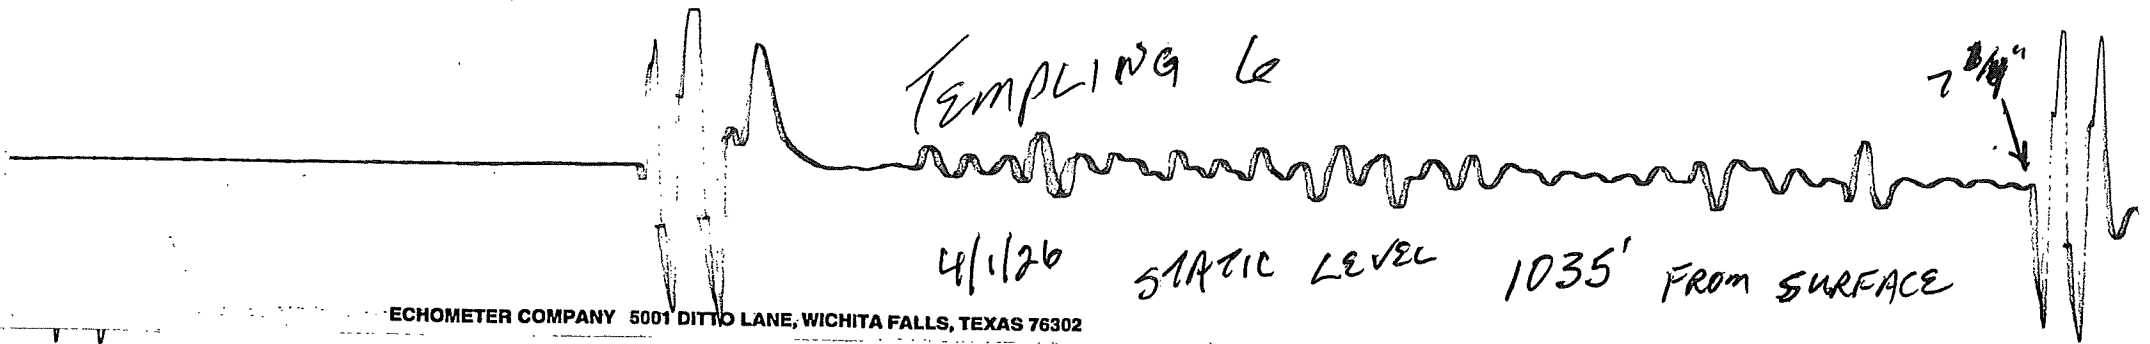 TEMPLING 6
7
4/1/26 STATIC LEVEL 1035' FROM SURFACE
ECHOMETER COMPANY 5001 DITTO LANE, WICHITA FALLS, TEXAS 76302